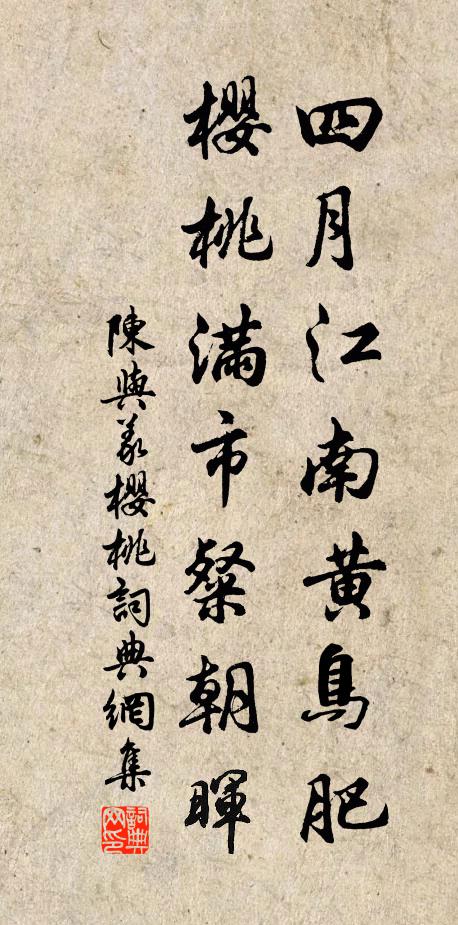 四月江南黄鳥肥
櫻桃滿市粲朝暉
陳與義櫻桃詞典網集
詞典
网印